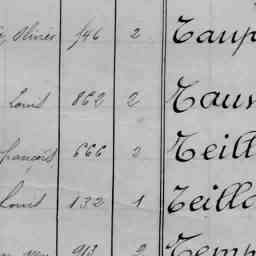 Olivier 546 2 Taup
Louis 862 2
François 666 2 Teill
Louis 132 1 Teilla
2 Temp